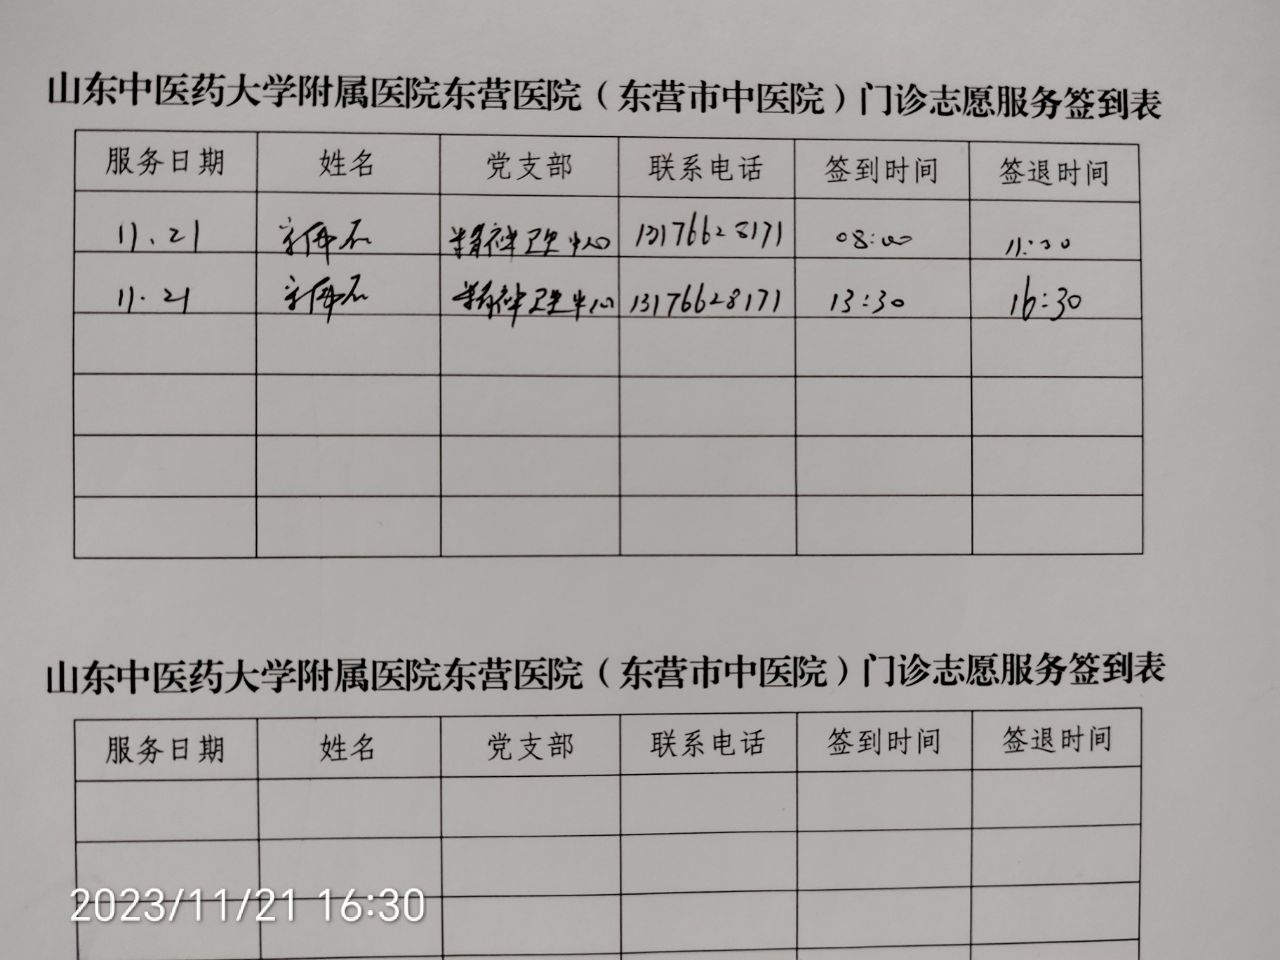 山东中医药大学附属医院东营医院（东营市中医院）门诊志愿服务签到表
服务日期 姓名 党支部 联系电话 签到时间 签退时间
11.21 精神卫生中心 13176628171 08:00 11:30
11.21 精神卫生中心 13176628171 13:30 16:30
山东中医药大学附属医院东营医院（东营市中医院）门诊志愿服务签到表
服务日期 姓名 党支部 联系电话 签到时间 签退时间
2023/11/21 16:30